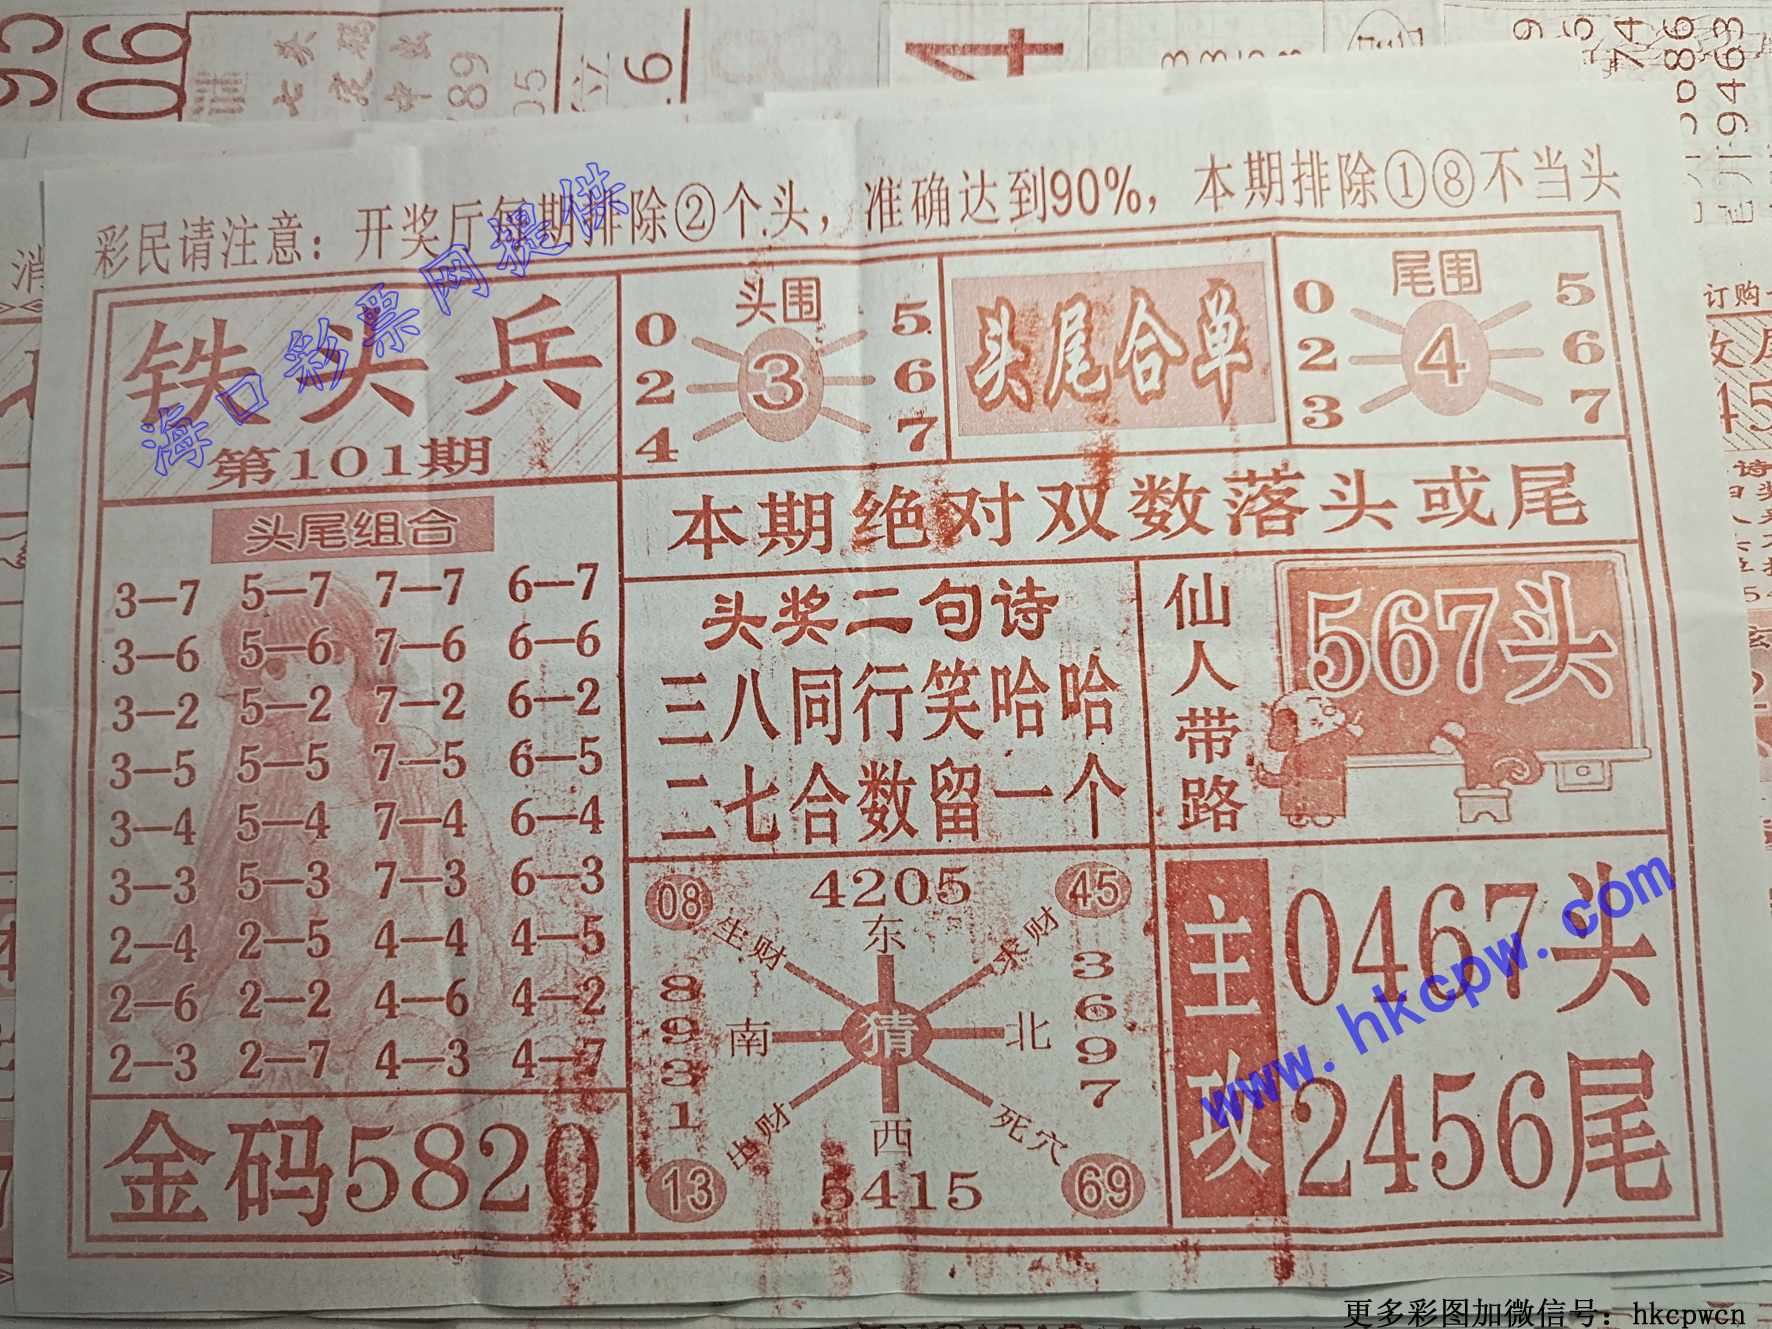 彩民请注意：开奖厅每期排除②个头，准确达到90%，本期排除①⑧不当头
铁头兵
第101期
头围
0 5
2 3 6
4 7
头尾合单
尾围
0 5
2 4 6
3 7
本期绝对双数落头或尾
头尾组合
3—7 5—7 7—7 6—7
3—6 5—6 7—6 6—6
3—2 5—2 7—2 6—2
3—5 5—5 7—5 6—5
3—4 5—4 7—4 6—4
3—3 5—3 7—3 6—3
2—4 2—5 4—4 4—5
2—6 2—2 4—6 4—2
2—3 2—7 4—3 4—7
金码5820
头奖二句诗
三八同行笑哈哈
二七合数留一个
仙人带路
567头
08 4205 45
生财 东 来财
8931 南 猜 北 3697
出财 西 死穴
13 5415 69
主攻
0467头
2456尾
海口彩票网提供
www.hkcpw.com
更多彩图加微信号：hkcpwcn
06
七
中
89
05
4
74
9463
订购